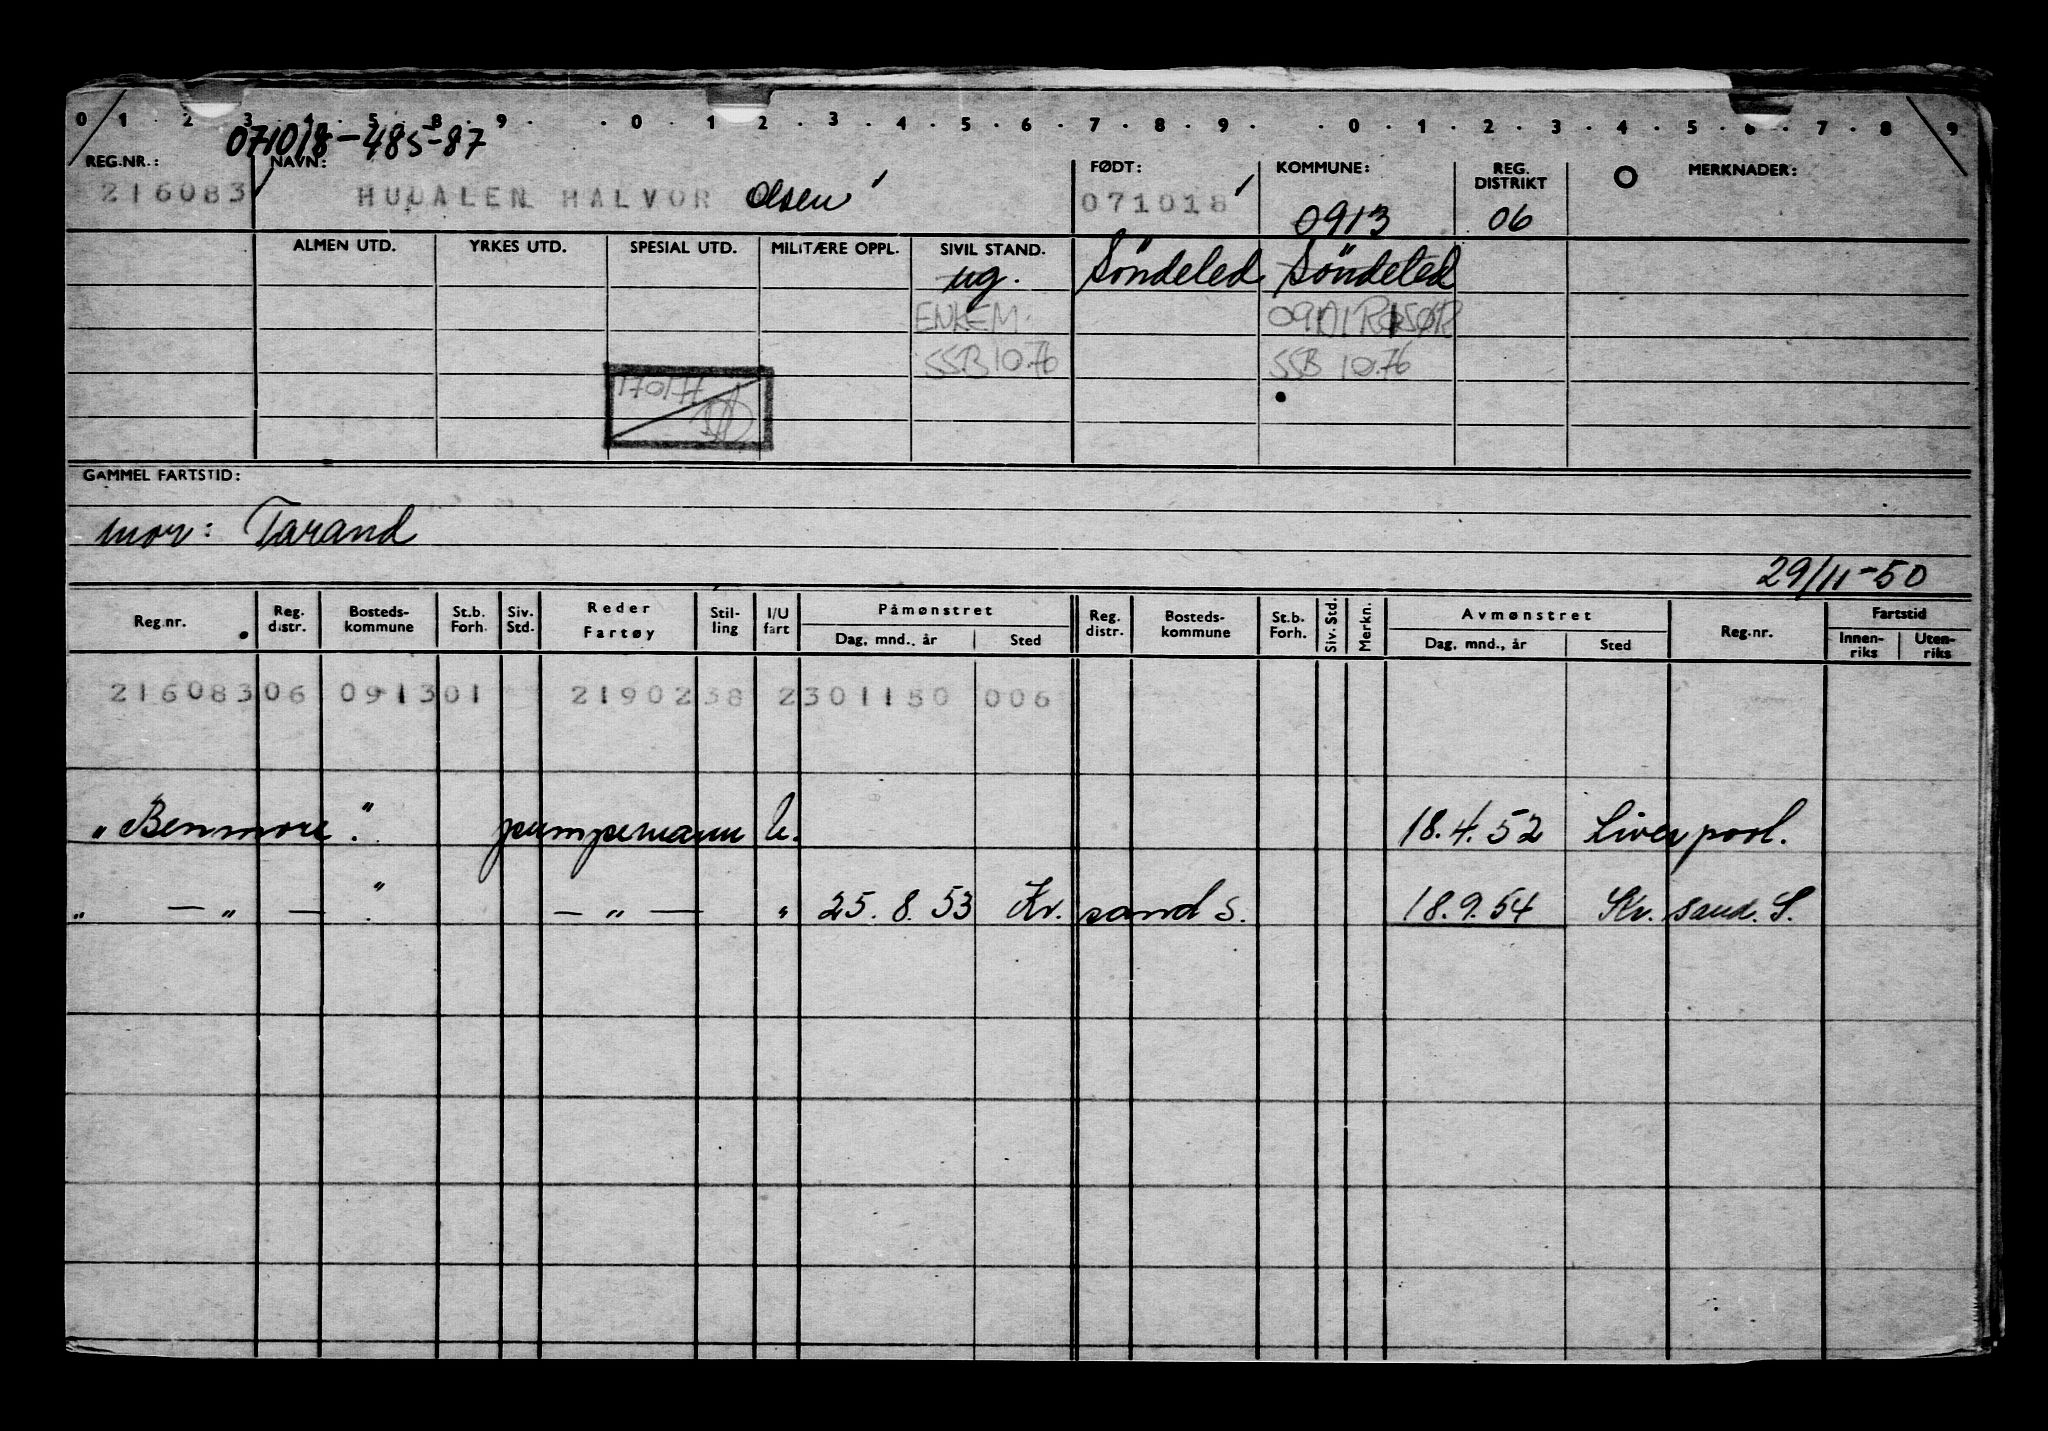 0 1 2 3 4 5 8 9 . 0 1 2 3 4 5 6 7 8 9 . 0 1 2 3 4 5 6 7 8 9
071018-485-87
REG.NR.: NAVN: FØDT: KOMMUNE: REG. DISTRIKT MERKNADER:
216083 HUDALEN HALVOR Olsen 071018 0913 06
ALMEN UTD. YRKES UTD. SPESIAL UTD. MILITÆRE OPPL. SIVIL STAND.
ug. Söndeled Söndeled
ENKEM. 0901 RISØR
SSB 10.76 SSB 10.76
170177
GAMMEL FARTSTID:
mor: Tarand
29/11-50
Reg.nr. Reg. distr. Bosteds-kommune St.b. Forh. Siv. Std. Reder Fartøy Stil-ling I/U fart Påmønstret Dag, mnd., år Sted Reg. distr. Bosteds-kommune St.b. Forh. Siv. Std. Merkn. Avmønstret Dag, mnd., år Sted Reg.nr. Fartstid Innen-riks Uten-riks
216083 06 0913 01 2190238 2301150 006
"Benmore". pumpemann U. 18.4.52 Liverpool.
" — " — ". — " — " 25.8.53 Kr.sand S. 18.9.54 Kr.sand.S.